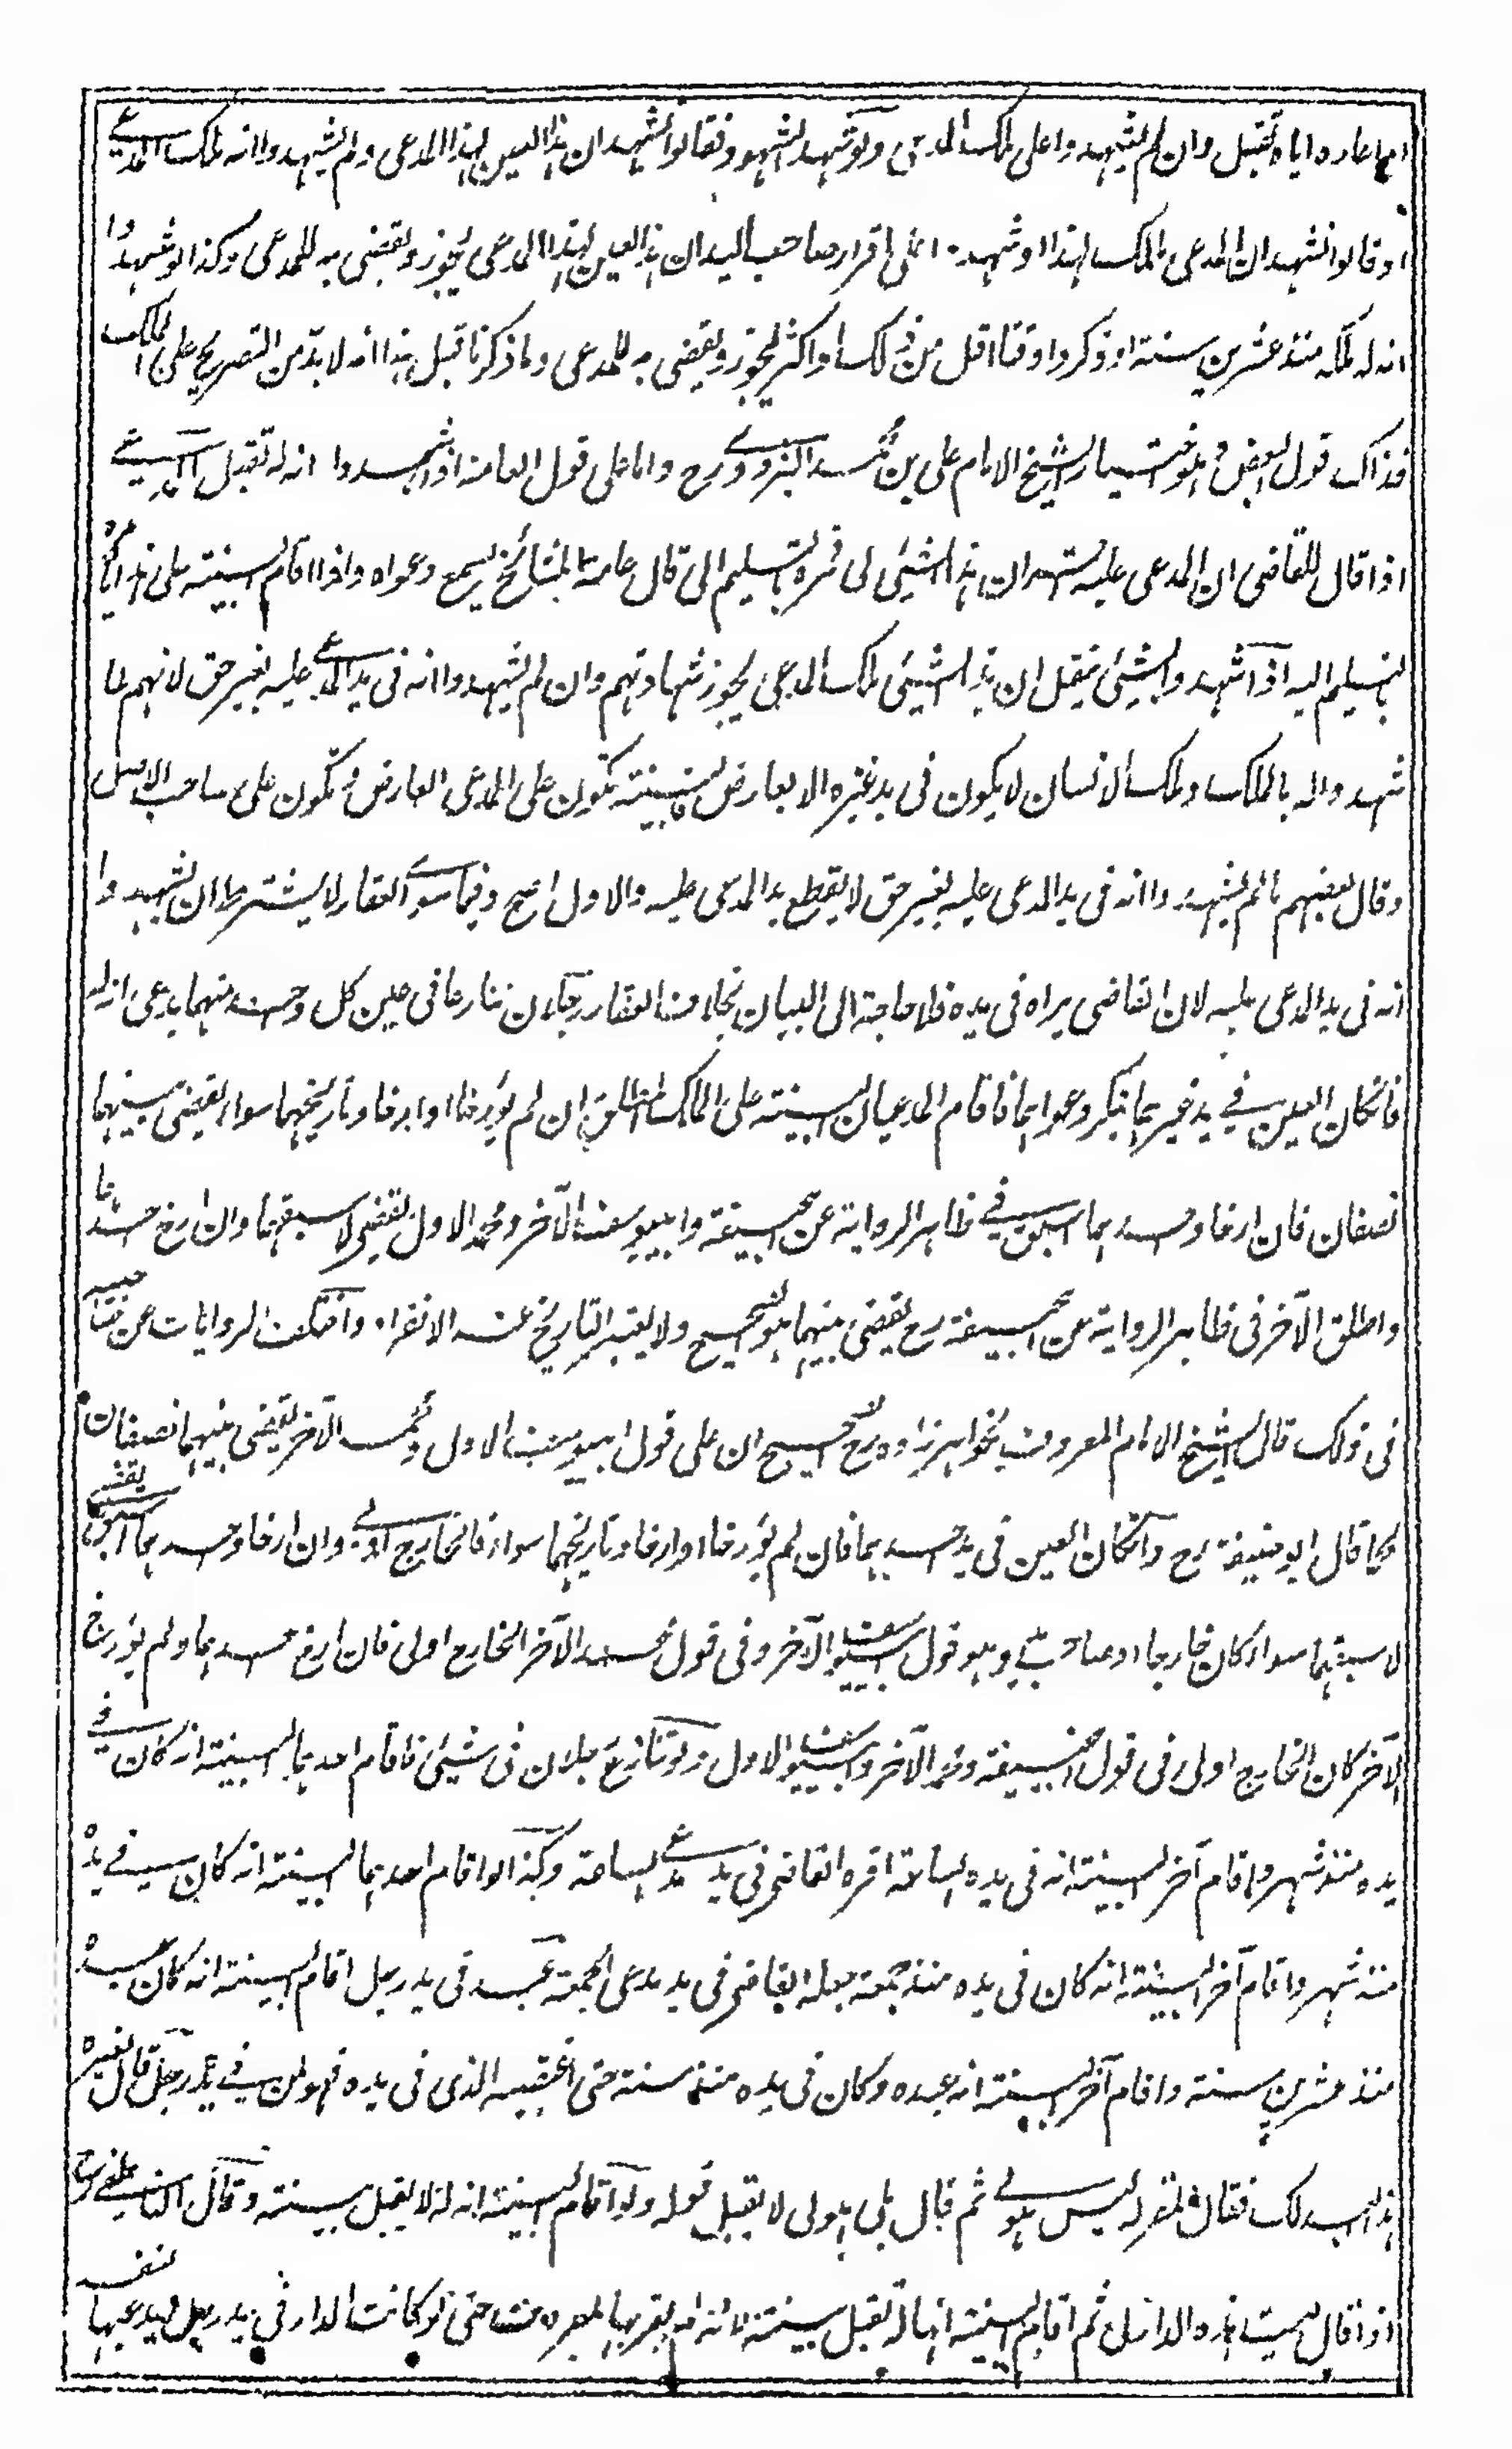 اعاره اياه تقبل وان لم يشهدوا على ملك المدعى ولو شهد الشهود فقالوا نشهد ان هذا العين لهذا المدعى ولم يشهدوا انه ملك المدعى
او قالوا نشهد ان المدعى ملك لهذا او شهدا على اقرار صاحب اليد ان هذا العين لهذا المدعى يجوز ويقضى به للمدعى وكذا لو شهدوا
انه له ملكه منذ عشرين سنة او ذكروا وقتا اقل من ذلك او اكثر يجوز ويقضى به للمدعى وما ذكرنا قبل هذا انه لا بد من التصريح على الملك
فذاك قول البعض وهو اختيار الشيخ الامام على بن محمد البزدوى رح واما على قول العامة اذا شهدوا انه له تقبل المدعى
اذا قال للقاضى ان المدعى عليه هذا الشيئ لى فمره بالتسليم الى قال عامة المشائخ يسمع دعواه واذا اقام البينة على ذلك امره
بتسليم اليه اذا شهدوا بشيئ ينقل ان هذا الشيئ ملك المدعى يجوز شهادتهم وان لم يشهدوا انه فى يد المدعى عليه بغير حق لانهم لما
شهدوا له بالملك وملك الانسان لا يكون فى يد غيره الا بعارض فالبينة تكون على المدعى العارض ولا تكون على صاحب الاصل
وقال بعضهم ما لم يشهدوا انه فى يد المدعى عليه بغير حق لا يقطع يد المدعى عليه والاول اصح وفيما سوى العقار لا يشترط ان يشهدوا
انه فى يد المدعى عليه لان القاضى يراه فى يده فلا حاجة الى البيان بخلاف العقار رجلان تنازعا فى عين كل واحد منهما يدعى انه له
فانكان العين فى يد غيرهما ينكر دعواهما فاقام المدعيان البينة على الملك المطلق ان لم يؤرخا او ارخا وتاريخهما سواء يقضى بينهما
نصفان فان ارخا واحدهما اسبق فى ظاهر الرواية عن ابيحنيفة وابييوسف الآخر ومحمد الاول يقضى لاسبقهما وان ارخ احدهما
واطلق الآخر فى ظاهر الرواية عن ابيحنيفة رح يقضى بينهما هو الصحيح ولا يعتبر التاريخ عند الانفراد واختلفت الروايات عن صاحبيه
فى ذلك قال الشيخ الامام المعروف بخواهرزاده رح الصحيح ان على قول ابييوسف الاول ومحمد الآخر يقضى بينهما نصفان
كما قال ابو حنيفة رح وانكان العين فى يد احدهما فان لم يؤرخا او ارخا وتاريخهما سواء فالخارج اولى وان ارخا واحدهما اسبق يقضى
لاسبقهما سواء كان خارجا او صاحب يد وهو قول ابييوسف الآخر وفى قول محمد الآخر الخارج اولى فان ارخ احدهما ولم يؤرخ
الآخر كان الخارج اولى فى قول ابيحنيفة ومحمد الآخر وابييوسف الاول ولو تنازع رجلان فى شيئ فاقام احدهما البينة انه كان فى
يده منذ شهر واقام آخر البينة انه فى يده الساعة اقره القاضى فى يد مدعى الساعة وكذا لو اقام احدهما البينة انه كان فى يده
منذ شهر واقام آخر البينة انه كان فى يده منذ جمعة جعله القاضى فى يد مدعى الجمعة عبد فى يد رجل اقام البينة انه كان عبده
منذ عشرين سنة واقام آخر البينة انه عبده وكان فى يده منذ سنة حتى اغتصبه الذى فى يده فهو لمن فى يده رجل قال لغيره
هذا العبد لك فقال المقر له ليس هو لى ثم قال بلى هو لى لا يقبل قوله ولو اقام البينة انه له لا يقبل بينته وقال
اذا قال ليست هذه الدار لى ثم اقام البينة انها له تقبل بينته لانه لم يقر بها لمعروف حتى لو كانت الدار فى يد رجل يدعيها